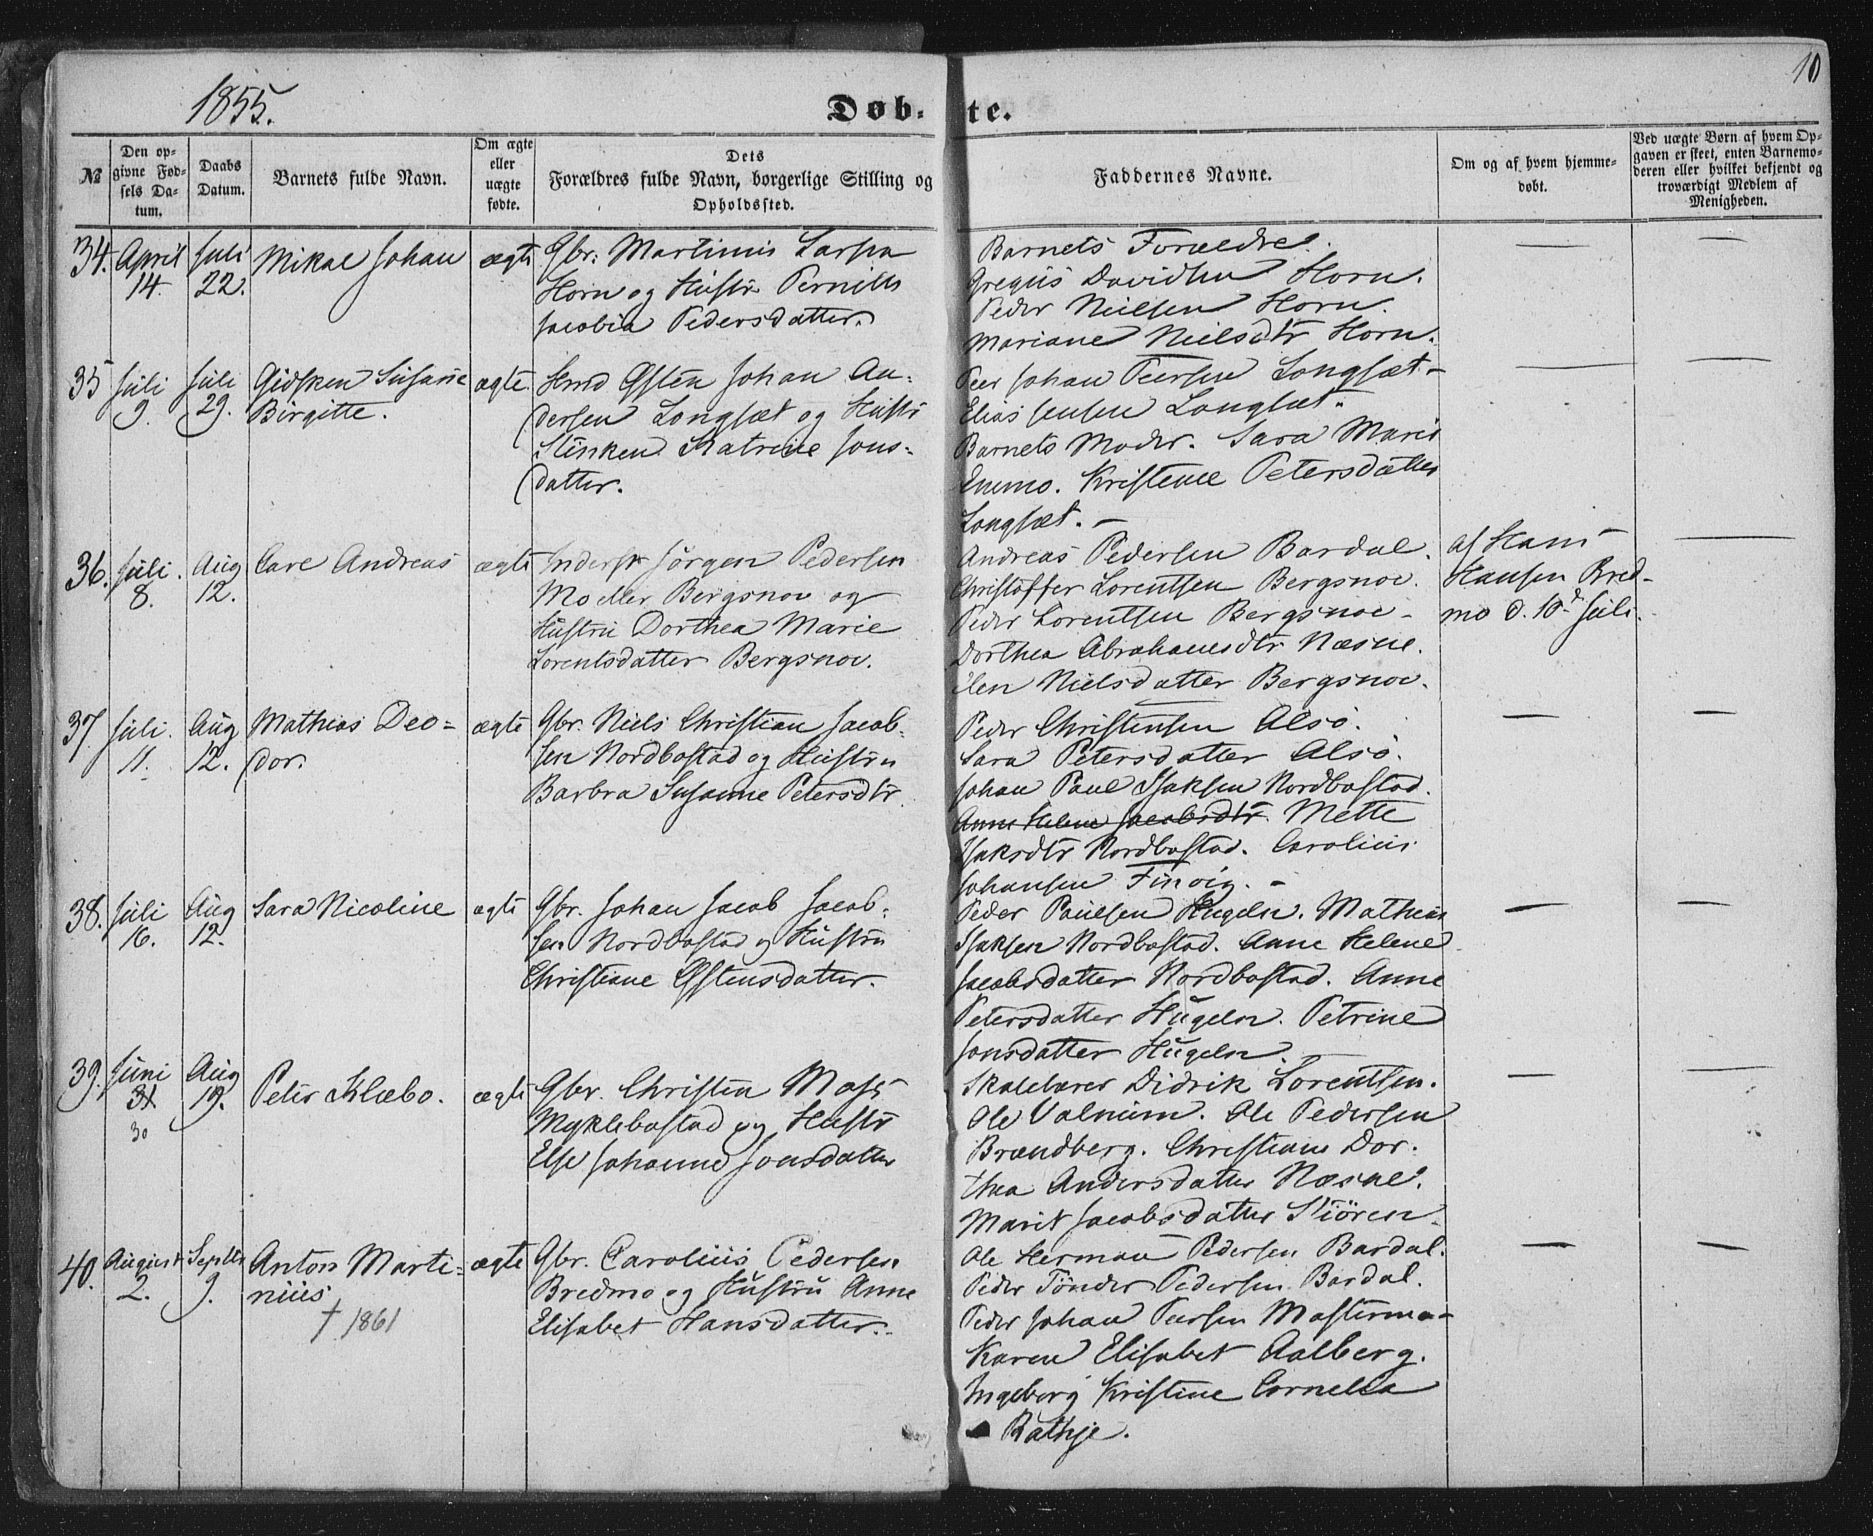 1855.
Døb-
te.
10
№
Den op-
givne Fød-
sels Da-
tum.
Daabs
Datum.
Barnets fulde Navn.
Om ægte
eller
uægte
fødte.
Dets
Forældres fulde Navn, borgerlige Stilling og
Opholdssted.
Faddernes Navne.
Om og af hvem hjemme-
døbt.
Ved uægte Børn af hvem Op-
gaven er skeet, enten Barnemo-
deren eller hvilket bekjendt og
troværdigt Medlem af
Menigheden.
34.
April
14.
Juli
22.
Mikal Johan
ægte
Gbr. Martinus Larsen
Horn og Hustr Pernille
Jacobia Pedersdatter.
Barnets Forældre.
Gregus Davidsen Horn.
Peder Nielsen Horn.
Mariane Nielsdtr Horn.
35
Juli
9.
Juli
29.
Gidsken Susanne
Birgitte.
ægte.
Hmd Østen Johan An-
dersen Longsæt og Hustr
Stinken Katrine Jons-
datter.
Peer Johan Peersen Longsæt-
Elias Jensen Longsæt.
Barnets Moder. Sara Marie
Emmo. Kristense Petersdatter
Longsæt. -
36.
Juli.
8.
Aug
12.
Carl Andreas
ægte
Inderst Jørgen Pedersen
Moeller Bergsnov og
Hustru Dorthea Marie
Lorentsdatter Bergsnov.
Andreas Pedersen Bardal.
Christoffer Lorentsen Bergsnov.
Peder Lorentsen Bergsnov -
Dorthea Abrahamsdtr Næsne.
Elen Nielsdatter Bergsnov.
af Hans
Hansen Bred-
mo d. 10d Juli.
37.
Juli.
11.
Aug
12.
Mathias Deo-
dor.
ægte
Gbr. Niels Christian Jacob-
sen Nordbostad og Hustru
Barbra Susanne Petersdtr.
Peder Christensen Alsø.
Sara Petersdatter Alsø.
Johan Paul Isaksen Nordbostad.
Anne Helene Jacobsdtr. Mette
Isaksdtr Nordbostad. Carolius
Johansen Finvig. -
38.
Juli
16.
Aug
12.
Sara Nicoline
ægte
Gbr. Johan Jacob Jacob-
sen Nordbostad og Hustru
Christiane Østensdatter.
Peder Paulsen Hugeln. Mathias
Isaksen Nordbostad. Anne Helene
Jacobsdatter Nordbostad. Anne
Petersdatter Hugeln. Petrine
Jonsdatter Hugeln.
39.
Juni
31
30
Aug
19.
Peter Klæbo.
ægte
Gbr. Christen Moss
Myklebostad og Hustr
Else Johanne Jonsdatter
Skolelærer Didrik Lorentsen.
Ole Valnum. Ole Pedersen
Brændberg. Christiane Dor-
thea Andersdatter Næsne.
Marit Jacobsdatter Stiøren.
40.
August
2.
Septbr
9.
Anton Marti-
nius
† 1861
ægte
Gbr. Carolius Pedersen
Bredmo og Hustru Anne
Elisabet Hansdatter.
Ole Herman Pedersen Bardal.
Peder Tønder Pedersen Bardal.
Peder Johan Peersen Mastermo-
Karen Elisabet Aalberg.
Ingeborg Kristine Cornelia
Rathje.